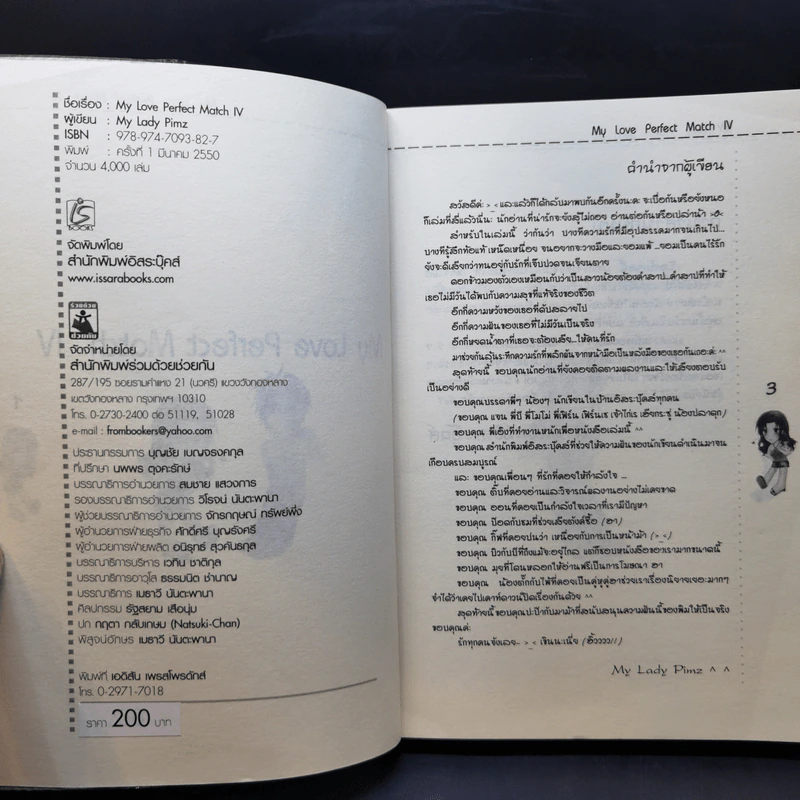 ชื่อเรื่อง : My Love Perfect Match IV
ผู้เขียน : My Lady Pimz
ISBN : 978-974-7093-82-7
พิมพ์ : ครั้งที่ 1 มีนาคม 2550
จำนวน 4,000 เล่ม
is
BOOKS
จัดพิมพ์โดย
สำนักพิมพ์อิสระบุ๊คส์
www.issarabooks.com
ร่วมด้วย
ช่วยกัน
จัดจำหน่ายโดย
สำนักพิมพ์ร่วมด้วยช่วยกัน
287/195 ซอยรามคำแหง 21 (นวศรี) แขวงวังทองหลาง
เขตวังทองหลาง กรุงเทพฯ 10310
โทร. 0-2730-2400 ต่อ 51119, 51028
e-mail : frombookers@yahoo.com
ประธานกรรมการ บุญชัย เบญจรงคกุล
ที่ปรึกษา นพพร ตุงคะรักษ์
บรรณาธิการอำนวยการ สมชาย แสวงการ
รองบรรณาธิการอำนวยการ วิโรจน์ นันตะพานา
ผู้ช่วยบรรณาธิการอำนวยการ จักรกฤษณ์ ทรัพย์พึ่ง
ผู้อำนวยการฝ่ายธุรกิจ ศักดิ์ศรี บุญรังศรี
ผู้อำนวยการฝ่ายผลิต อนิรุทธ์ สุวคันธกุล
บรรณาธิการบริหาร เวทิน ชาติกุล
บรรณาธิการอาวุโส ธรรมนิต ชำนาญ
บรรณาธิการ เมธาวี นันตะพานา
ศิลปกรรม รัฐสยาม เสือนุ่ม
ปก กฤตา กลับเกษม (Natsuki-Chan)
พิสูจน์อักษร เมธาวี นันตะพานา
พิมพ์ที่ เอดิสัน เพรสโพรดักส์
โทร. 0-2971-7018
ราคา 200 บาท
My Love Perfect Match IV
คำนำจากผู้เขียน
สวัสดีค่ะ > < และแล้วก็ได้กลับมาพบกันอีกครั้งนะคะ จะเบื่อกันหรือยังหนอ
ก็เล่มที่สี่แล้วนี่นะ นักอ่านที่น่ารักจะยังสู้ไม่ถอย อ่านต่อกันหรือเปล่าน้า
สำหรับในเล่มนี้ ว่ากันว่า บางทีความรักที่มีอุปสรรคมากจนเกินไป...
บางทีรู้สึกท้อแท้ เหน็ดเหนื่อย จนอยากจะวางมือและยอมแพ้ ...ยอมเป็นคนไร้รัก
ยังจะดีเสียกว่าทนอยู่กับรักที่เจ็บปวดจนเจียนตาย
ดอกข้าวมองตัวเองเหมือนกับว่าเป็นสาวน้อยต้องคำสาป...คำสาปที่ทำให้
เธอไม่มีวันได้พบกับความสุขที่แท้จริงของชีวิต
อีกกี่ความหวังของเธอที่ดับสลายไป
อีกกี่ความฝันของเธอที่ไม่มีวันเป็นจริง
อีกกี่หยดน้ำตาที่เธอจะต้องเสีย...ให้คนที่รัก
มาช่วยกันลุ้นระทึกความรักที่พลิกผันจากหน้ามือเป็นหลังมือของเธอกันเถอะค่ะ ^^
สุดท้ายนี้ ขอบคุณนักอ่านที่ยังคอยติดตามผลงานและให้เสียงตอบรับ
เป็นอย่างดี
ขอบคุณบรรดาพี่ๆ น้องๆ นักเขียนในบ้านอิสระบุ๊คส์ทุกคน
ขอบคุณ พี่เอิงที่ทำงานหนักเพื่อหนังสือเล่มนี้ ^^
ขอบคุณสำนักพิมพ์อิสระบุ๊คส์ที่ช่วยให้ความฝันของนักเขียนดำเนินมาจน
เกือบครบสมบูรณ์
และ ขอบคุณเพื่อนๆ ที่รักที่คอยให้กำลังใจ ...
ขอบคุณ ติ๊บที่คอยอ่านและวิจารณ์ผลงานอย่างไม่เคยขาด
ขอบคุณ ออนที่คอยเป็นกำลังใจเวลาที่เรามีปัญหา
ขอบคุณ ป๊อดกับชมที่ช่วยเสียตังค์ซื้อ (ฮา)
ขอบคุณ กิ๊ฟที่คอยบ่นว่า เหนื่อยกับการเป็นหน้าม้า (>_<)
ขอบคุณ บิวกับบีที่ถึงแม้จะอยู่ไกล แต่ก็ชอบหนังสือของเรามากขนาดนี้
ขอบคุณ มุยที่โดนหลอกให้อ่านฟรีเป็นการโฆษณา ฮา
ขอบคุณ น้องตั๊กกับไฟ่ที่คอยเป็นคู่หูคู่ฮาช่วยเราเรื่องนิยายเยอะมากๆ
สุดท้ายนี้ขอบคุณปะป๊ากับมาม้าที่สนับสนุนความฝันนี้ของพิมให้เป็นจริง
ขอบคุณค่ะ
รักทุกคนจังเลย~ >_< เขินนะเนี่ย (อิ๊วววว!!)
My Lady Pimz ^ ^
3